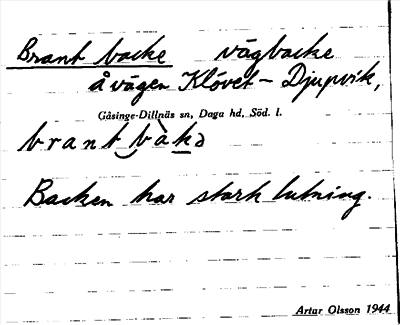 Brant backe vägbacke
å vägen Klövet - Djupvik,
Gåsinge-Dillnäs sn, Daga hd, Söd. l.
brant bàkə
Backen har stark lutning.
Artur Olsson 1944